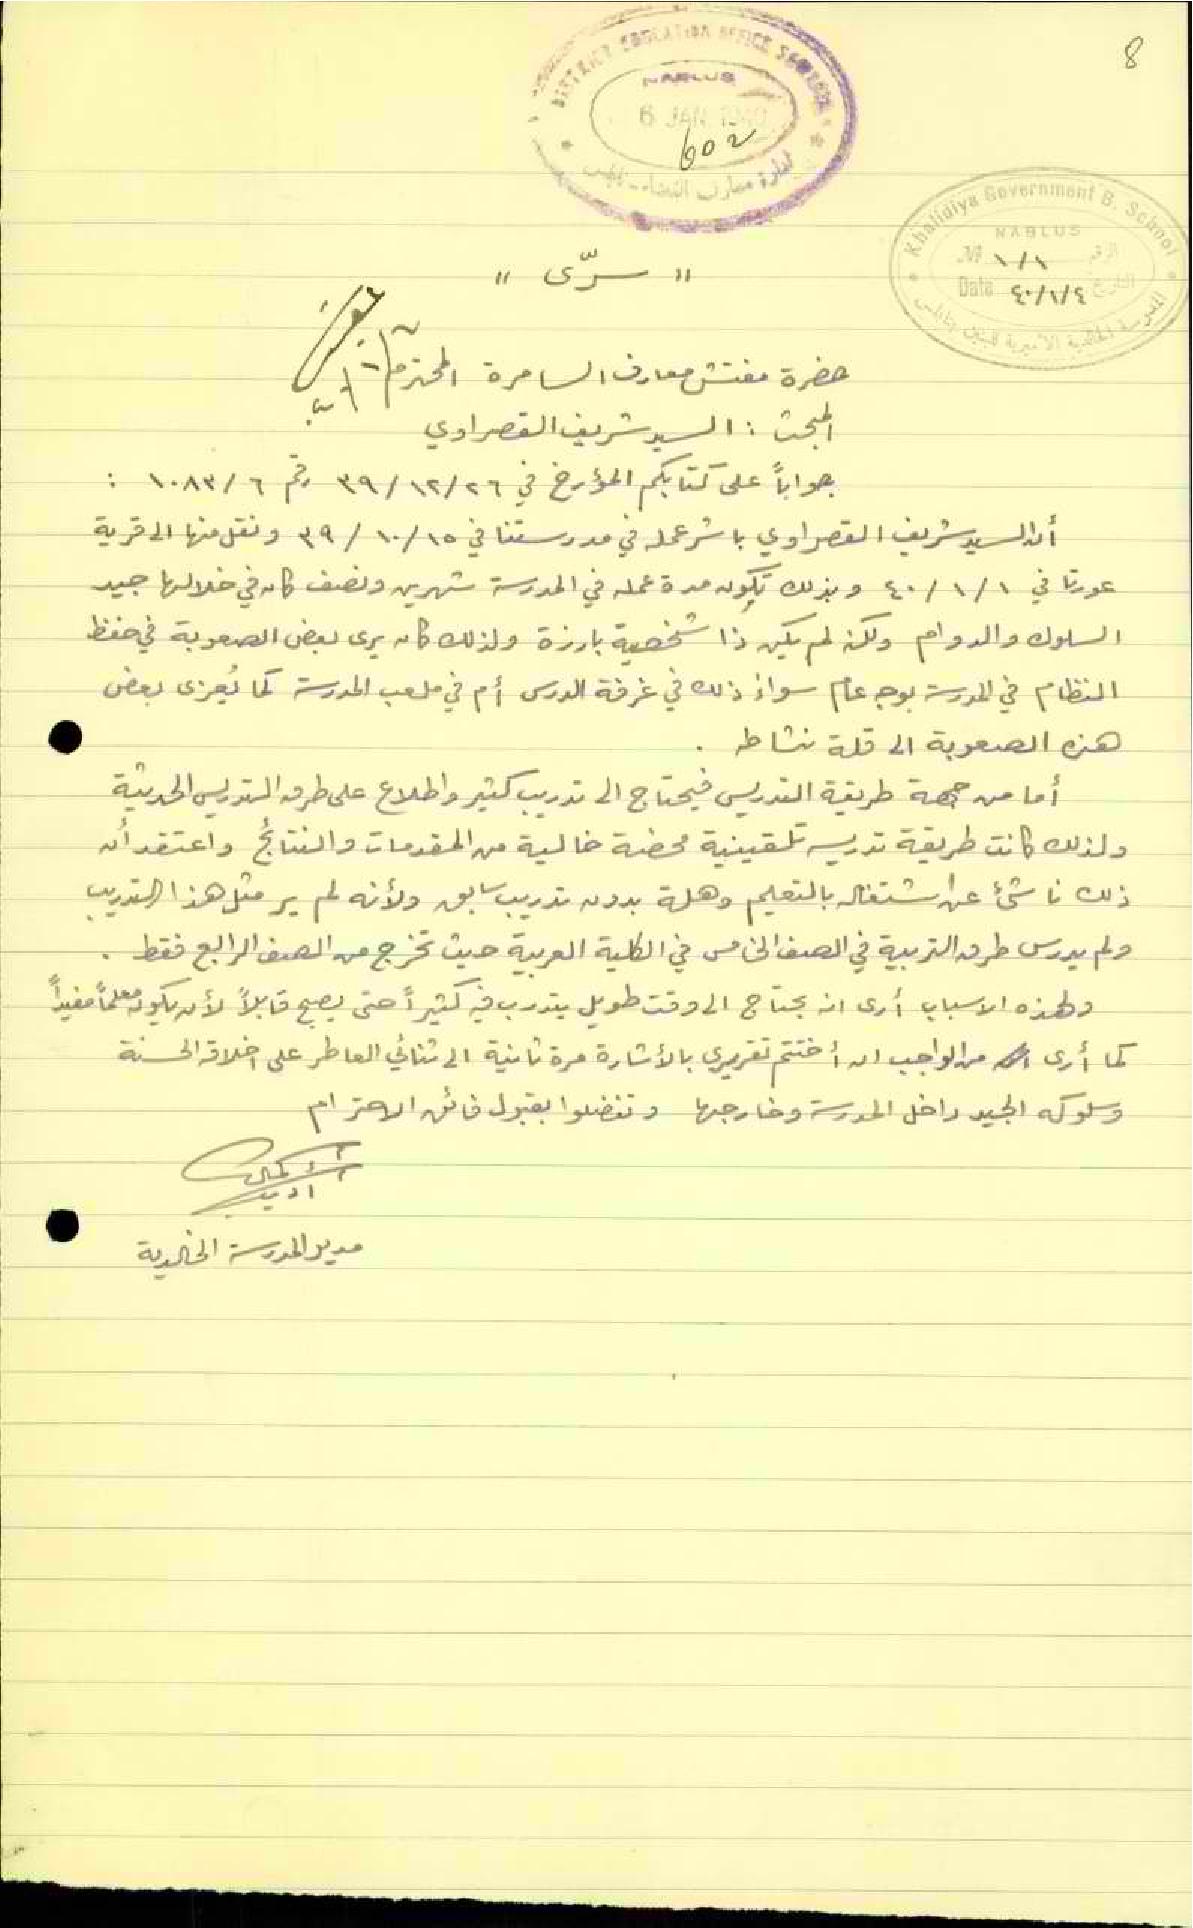 8
DISTRICT EDUCATION OFFICE
NABLUS
6 JAN 1940
602
ادارة معارف القضاء - نابلس
Khalidiya Government B. School
NABLUS
No ١/١ الرقم
Date ٤٠/١/٤ التاريخ
المدرسة الخالدية الاميرية للبنين بنابلس
" سرّى "
حضرة مفتش معارف السامرة المحترم
المبحث : السيد شريف القصراوي
جواباً على كتابكم المؤرخ في ٣٩/١٢/٢٦ رقم ١٠٨٣/٦ :
أن السيد شريف القصراوي باشر عمله في مدرستنا في ٣٩/١٠/١٥ ونقل منها الى قرية
عورتا في ٤٠/١/١ وبذلك تكون مدة عمله في المدرسة شهرين ونصف كان في خلالها جيد
السلوك والدوام ولكن لم يكن ذا شخصية بارزة ولذلك كان يرى بعض الصعوبة في حفظ
النظام في المدرسة بوجه عام سواء ذلك في غرفة الدرس أم في ملعب المدرسة كما يُعزى بعض
هذه الصعوبة الى قلة نشاطه .
أما من جهة طريقة التدريس فيحتاج الى تدريب كثير واطلاع على طرق التدريس الحديثة
ولذلك كانت طريقة تدريسه تلقينية محضة خالية من المقدمات والنتائج واعتقد أن
ذلك ناشئ عن اشتغاله بالتعليم وهلة بدون تدريب سابق ولأنه لم ير مثل هذا التدريب
ولم يدرس طرق التربية في الصف الخامس في الكلية العربية حيث تخرج من الصف الرابع فقط .
ولهذه الاسباب أرى انه يحتاج الى وقت طويل يتدرب فيه كثيراً حتى يصبح قابلاً لأن يكون معلماً مفيداً
كما أرى من الواجب ان أختتم تقريري بالأشارة مرة ثانية الى ثنائي العاطر على اخلاقه الحسنة
وسلوكه الجيد داخل المدرسة وخارجها وتفضلوا بقبول فائق الاحترام
مدير المدرسة الخالدية